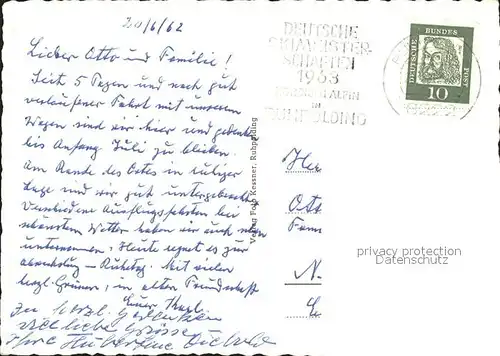 20/6/62
Lieber Otto und Familie!
Seit 5 Tagen und nach gut
verlaufener Fahrt mit unserem
Wagen sind wir hier und gedenken
bis Anfang Juli zu bleiben.
Am Rande des Ortes in ruhiger
Lage sind wir gut untergebracht.
Verschiedene Ausflugsfahrten bei
schönstem Wetter haben wir auch schon
unternommen. Heute regnet es zur
Abwechslung – Ruhetag. Mit vielen
herzl. Grüssen, in alter Freundschaft
Euer
Zu herzl. Gedenken
viele liebe Grüsse
Ihre
Verlag Foto Kessner, Ruhpolding
DEUTSCHE
SKIMEISTER-
SCHAFTEN
1963
NORDISCH ALPIN
in
RUHPOLDING
DEUTSCHE BUNDESPOST
10
Otto
privacy protection
Datenschutz